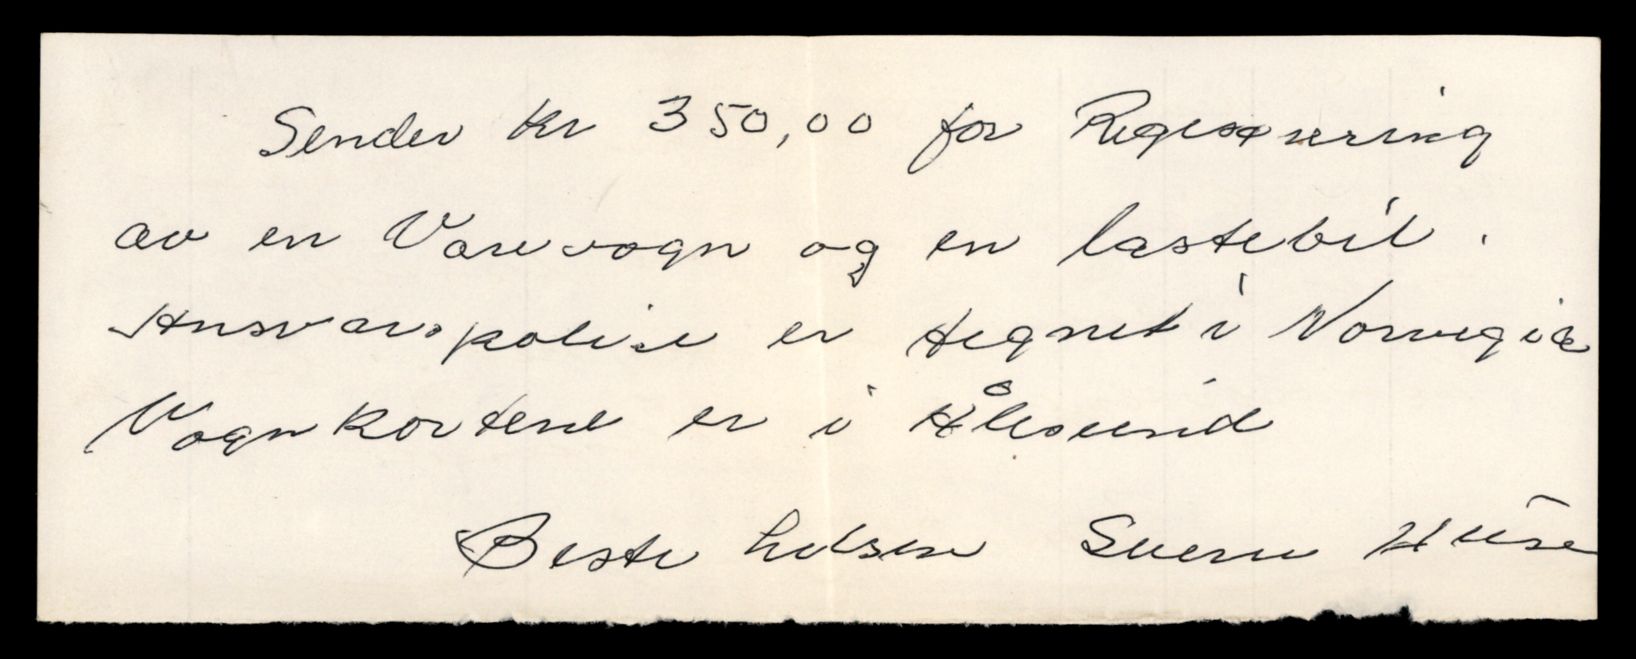 Sender kr 350,00 for Regestrering
av en Varevogn og en lastebil.
Ansvarspolise er tegnet i Norvegia
Vognkortene er i Ålesund
Beste helsen Sverre Huse